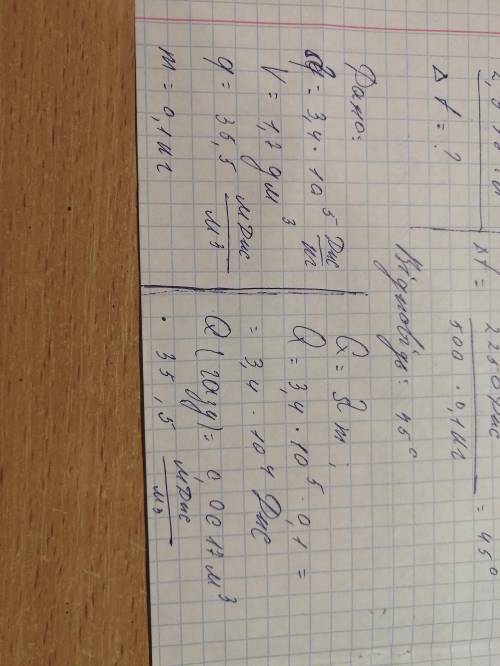 Δt = ?
Δt = 2250Дж / 500 · 0,1кг = 45°
Відповідь: 45°
Дано:
λ = 3,4 · 10⁵ Дж/кг
V = 1,7 дм³
q = 35,5 МДж/м³
m = 0,1кг
Q = λm;
Q = 3,4 · 10⁵ · 0,1 =
= 3,4 · 10⁴ Дж
Q (газу) = 0,0017м³
· 35,5 МДж/м³